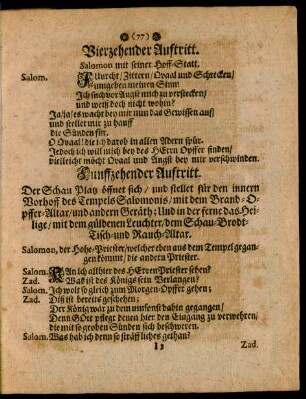 (77)
Vierzehender Aufftritt.
Salomon mit seiner Hoff-Statt.
Salom. Furcht/ Zittern/ Qvaal und Schrecken/
umgeben meinen Sinn!
Ich such vor Angst mich zu verstecken/
und weiß doch nicht wohin?
Ja/ ja/ es wacht bey mir nun das Gewissen auf/
und stellet mir zu hauff
die Sünden für.
O Qvaal/ die ich darob in allen Adern spür.
Jedoch ich will mich bey des HErrn Opffer finden/
vielleicht möcht Qvaal und Angst bey mir verschwinden.
Funffzehender Aufftritt.
Der Schau Platz öffnet sich/ und stellet für den innern
Vorhoff des Tempels Salomonis/ mit dem Brand-O-
pffer-Altar/ und andern Geräth; Und in der ferne das Hei-
lige/ mit dem güldenen Leuchter/ dem Schau-Brodt-
Tisch und Rauch-Altar.
Salomon, der Hohe-Priester/ welcher eben aus dem Tempel gegan-
gen kömmt, die andern Priester.
Salom. KAn ich allhier des HErren Priester sehen?
Zad. Was ist des Königs sein Verlangen?
Salom. Ich wolt so gleich zum Morgen-Opffer gehen;
Zad. Diß ist bereits geschehen;
Der König war zu dem umsonst dahin gegangen/
Denn GOtt pflegt denen hier den Eingang zu verwehren/
die mit so groben Sünden sich beschweren.
Salom. Was hab ich denn so sträfflichs gethan?
I 3 Zad.